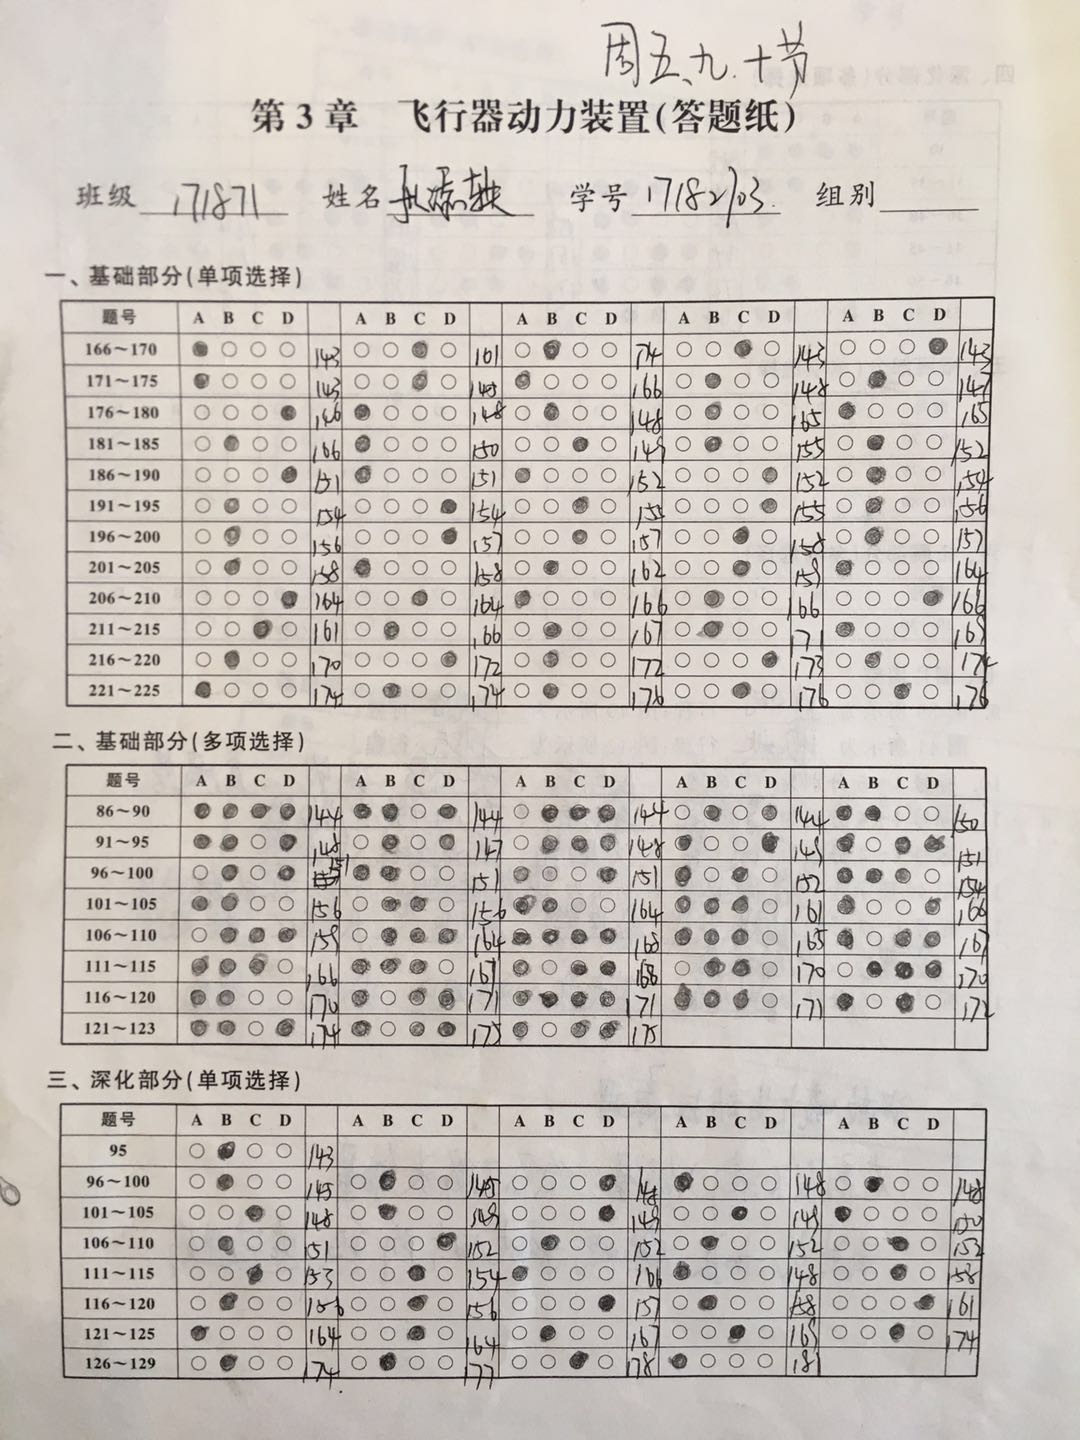 周五、九.十节
第3章 飞行器动力装置(答题纸)
班级 171871 姓名 学号 17182703 组别
一、基础部分(单项选择)
题号 A B C D A B C D A B C D A B C D A B C D
166~170 143 161 174 143 143
171~175 143 148 166 148 147
176~180 146 148 148 165 165
181~185 166 150 149 155 152
186~190 151 151 152 152 154
191~195 154 154 155 155 156
196~200 156 157 157 158 157
201~205 158 158 162 159 164
206~210 164 164 166 166 166
211~215 161 166 167 171 169
216~220 170 172 172 173 174
221~225 174 174 176 176 176
二、基础部分(多项选择)
题号 A B C D A B C D A B C D A B C D A B C D
86~90 144 144 144 144 150
91~95 148 147 148 149 151
96~100 151 151 151 152 154
101~105 156 156 164 161 166
106~110 159 164 168 165 167
111~115 166 167 168 170 170
116~120 170 171 171 171 172
121~123 174 175 175
三、深化部分(单项选择)
题号 A B C D A B C D A B C D A B C D A B C D
95 143
96~100 145 145 148 148 148
101~105 148 149 149 149 150
106~110 151 152 152 152 152
111~115 153 154 166 148 158
116~120 156 156 157 158 161
121~125 164 164 167 169 174
126~129 174 177 178 181